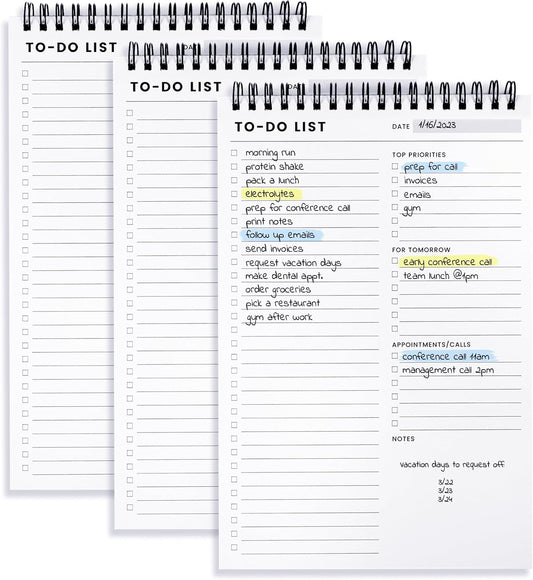 TO-DO LIST
TO-DO LIST
TO-DO LIST
DATE 1/16/2023
morning run
protein shake
pack a lunch
electrolytes
prep for conference call
print notes
follow up emails
send invoices
request vacation days
make dental appt.
order groceries
pick a restaurant
gym after work
TOP PRIORITIES
prep for call
invoices
emails
gym
FOR TOMORROW
early conference call
team lunch @1pm
APPOINTMENTS/CALLS
conference call 11am
management call 2pm
NOTES
Vacation days to request off
3/22
3/23
3/24